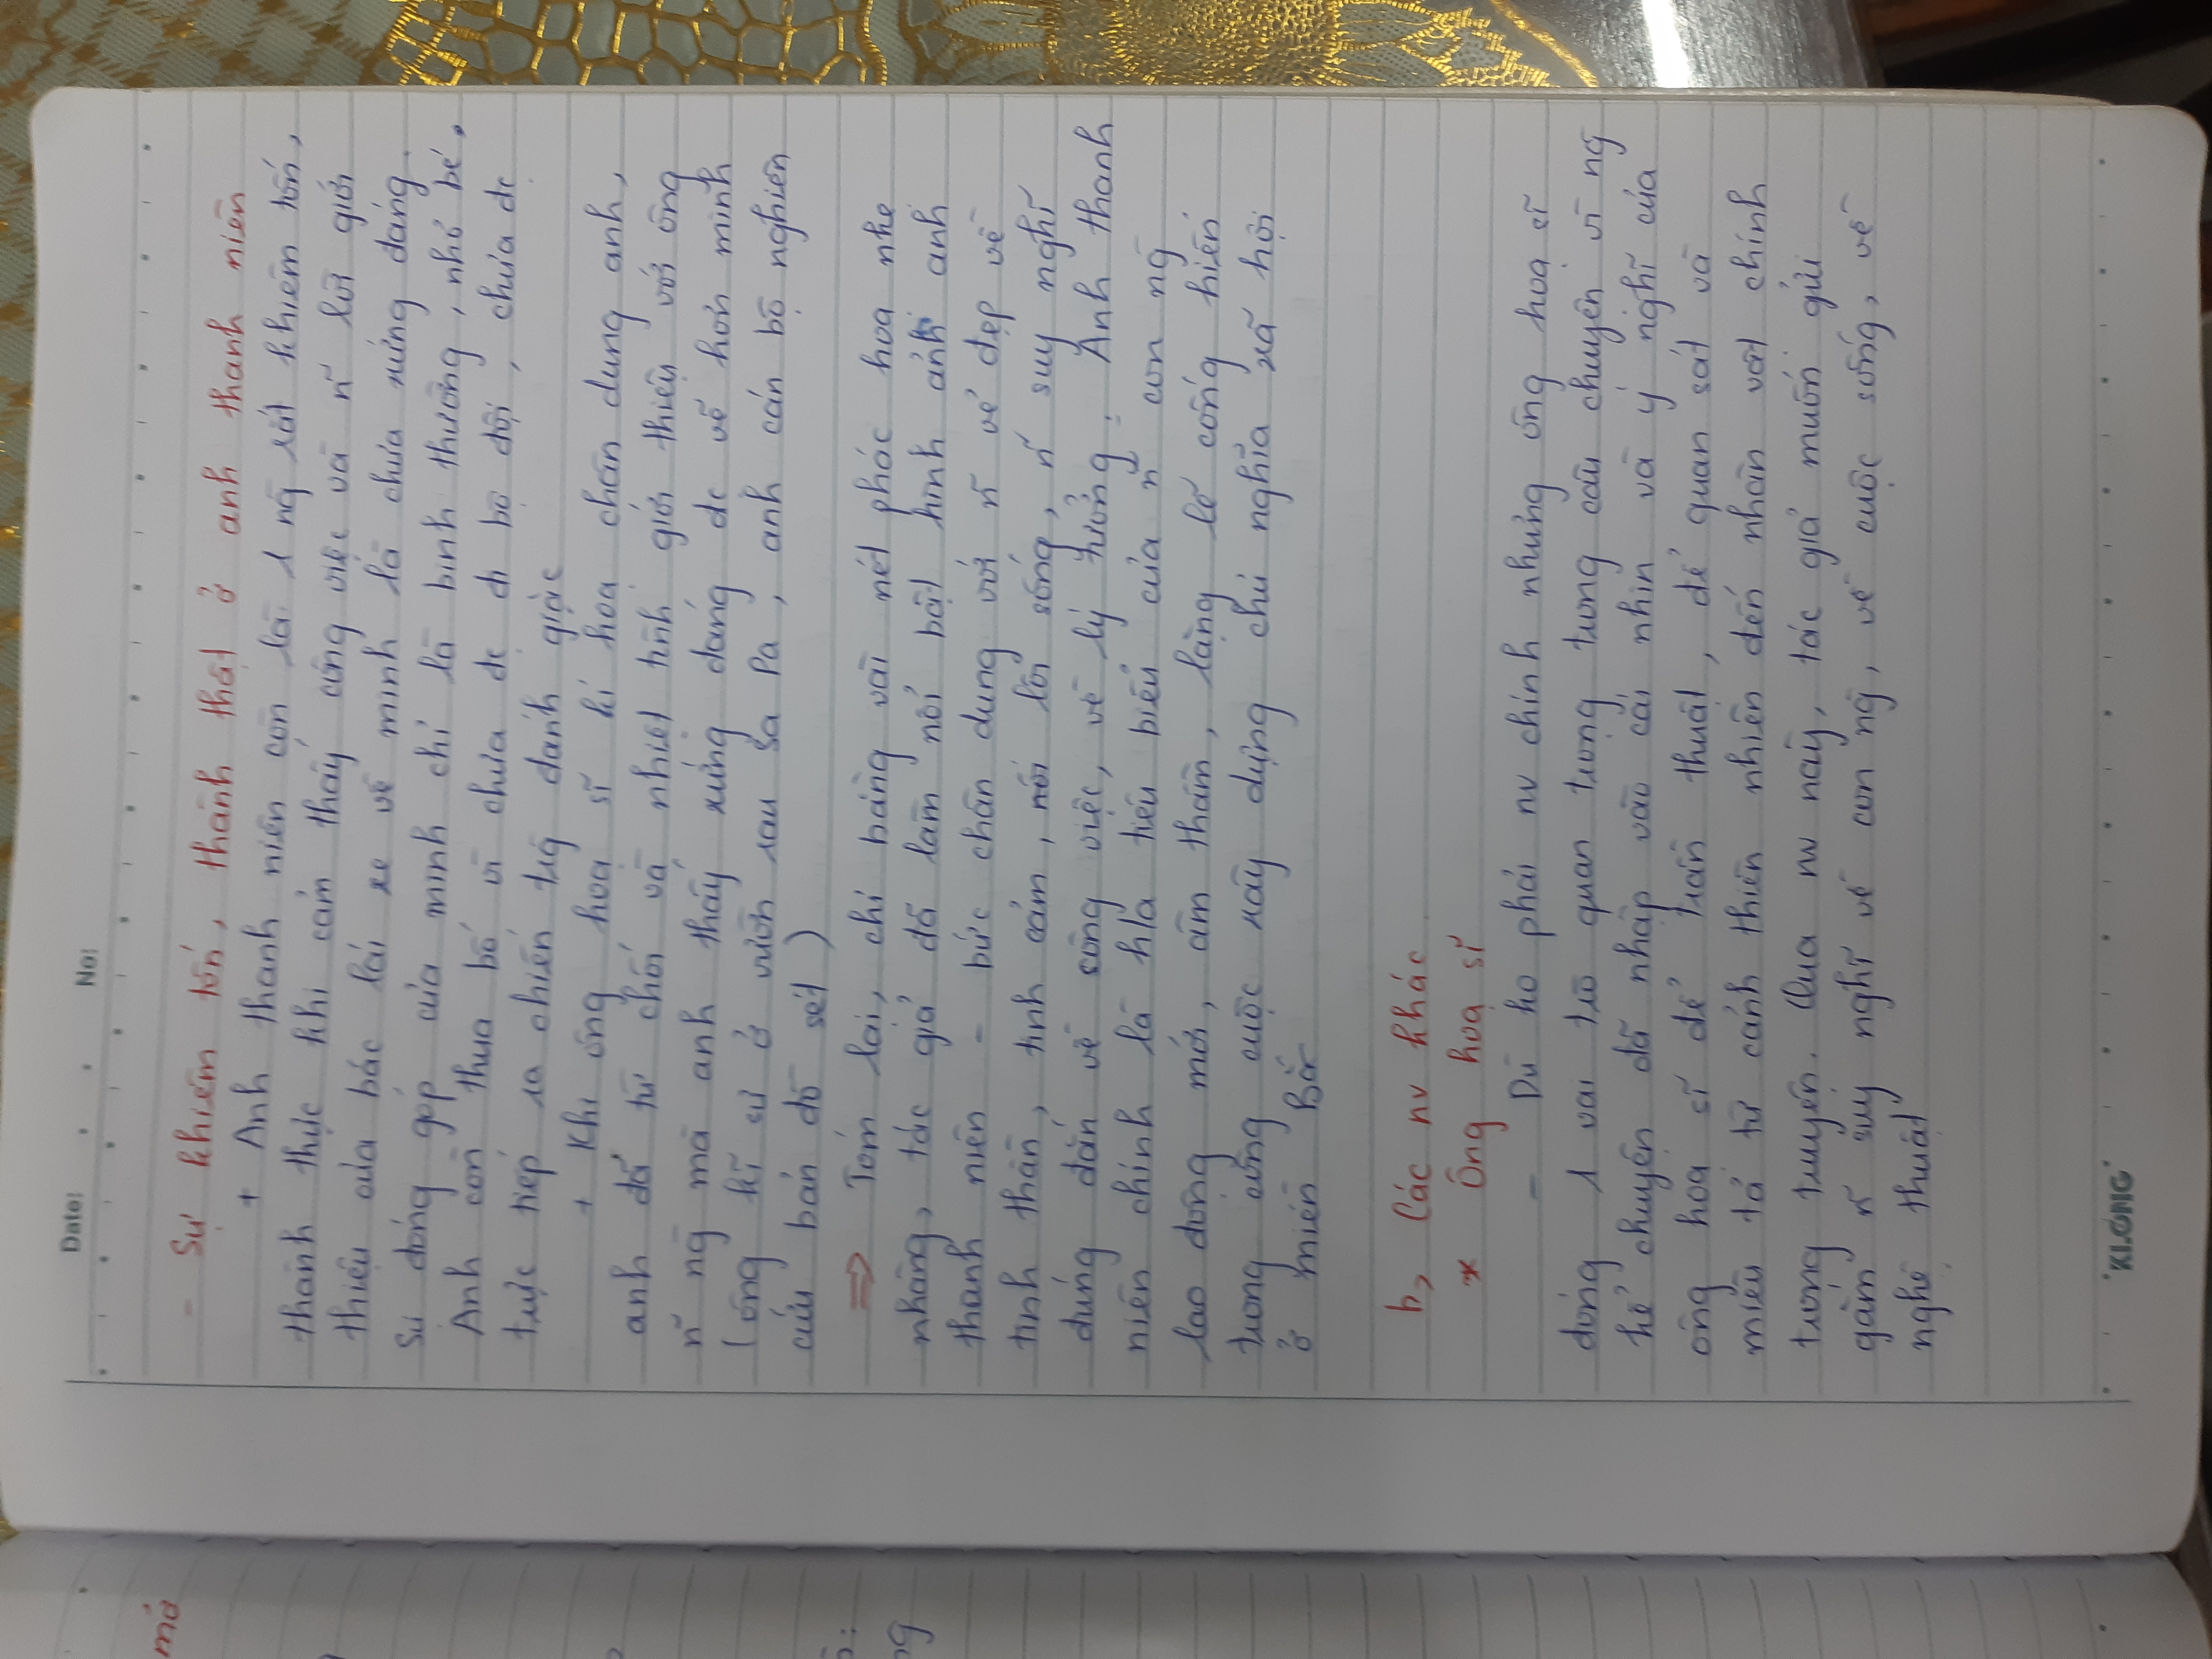 mở
Date: No:
- Sự khiêm tốn, thành thật ở anh thanh niên
+ Anh thanh niên còn là 1 ng̃ rất khiêm tốn,
thành thực khi cảm thấy công việc và n~ lời giới
thiệu của bác lái xe về mình là chưa xứng đáng.
Sự đóng góp của mình chỉ là bình thường, nhỏ bé.
Anh còn thua bố vì chưa đc đi bộ đội, chưa đc
trực tiếp ra chiến trg̃ đánh giặc
+ Khi ông hoạ sĩ kí hoạ chân dung anh,
anh đã từ chối và nhiệt tình giới thiệu với ông
n~ ng̃ mà anh thấy xứng đáng đc vẽ hơn mình
(ông kĩ sư ở vườn rau Sa Pa, anh cán bộ nghiên
cứu bản đồ sét)
⇒ Tóm lại, chỉ bằng vài nét phác hoạ nhẹ
nhàng, tác giả đã làm nổi bật hình ảnh anh
thanh niên - bức chân dung với n~ vẻ đẹp về
tinh thần, tình cảm, lối sống, n~ suy nghĩ
đúng đắn về công việc, về lý tưởng. Anh thanh
niên chính là h/a tiêu biểu của n~ con ng̃
lao động mới, âm thầm, lặng lẽ cống hiến
trong công cuộc xây dựng chủ nghĩa xã hội
ở miền Bắc
b, Các nv khác
* Ông hoạ sĩ
- Dù ko phải nv chính nhưng ông hoạ sĩ
đóng 1 vai trò quan trọng trong câu chuyện vì ng̃
kể chuyện đã nhập vào cái nhìn và ý nghĩ của
ông hoạ sĩ để trần thuật, để quan sát và
miêu tả từ cảnh thiên nhiên đến nhân vật chính
trong truyện. Qua nv này, tác giả muốn gửi
gắm n~ suy nghĩ về con ng̃, về cuộc sống, về
nghệ thuật
KLONG